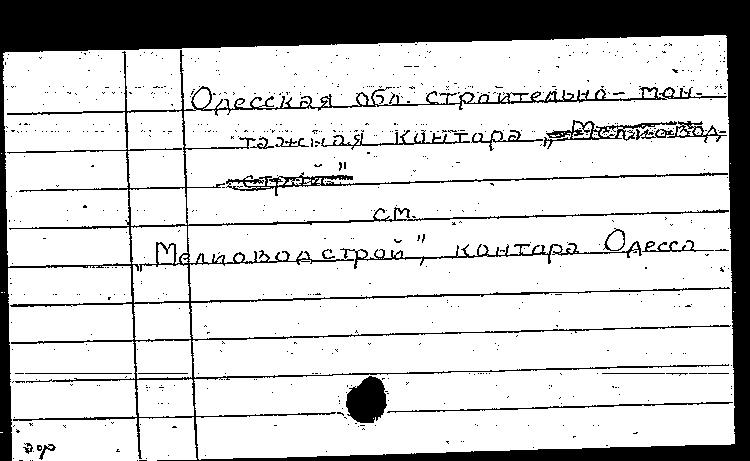 Одесская обл. строительно-мон-
тажная контора „Мелиовод-
строй"
см.
„Мелиоводстрой", контора Одесса